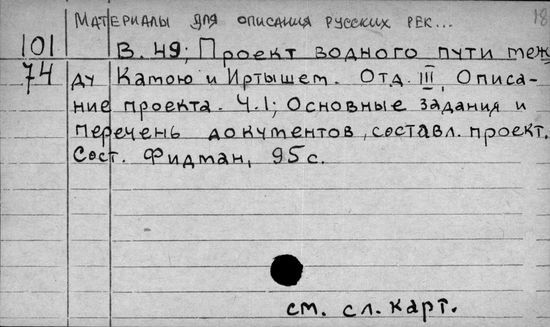 Материалы для описания русских рек... 18
101 В. 49; Проект водного пути меж
74 ду Камою и Иртышем. Отд. III, Описа-
ние проекта. Ч.I; Основные задания и
перечень документов, составл. проект.
Сост. Фидман, 95 с.
см. сл. карт.